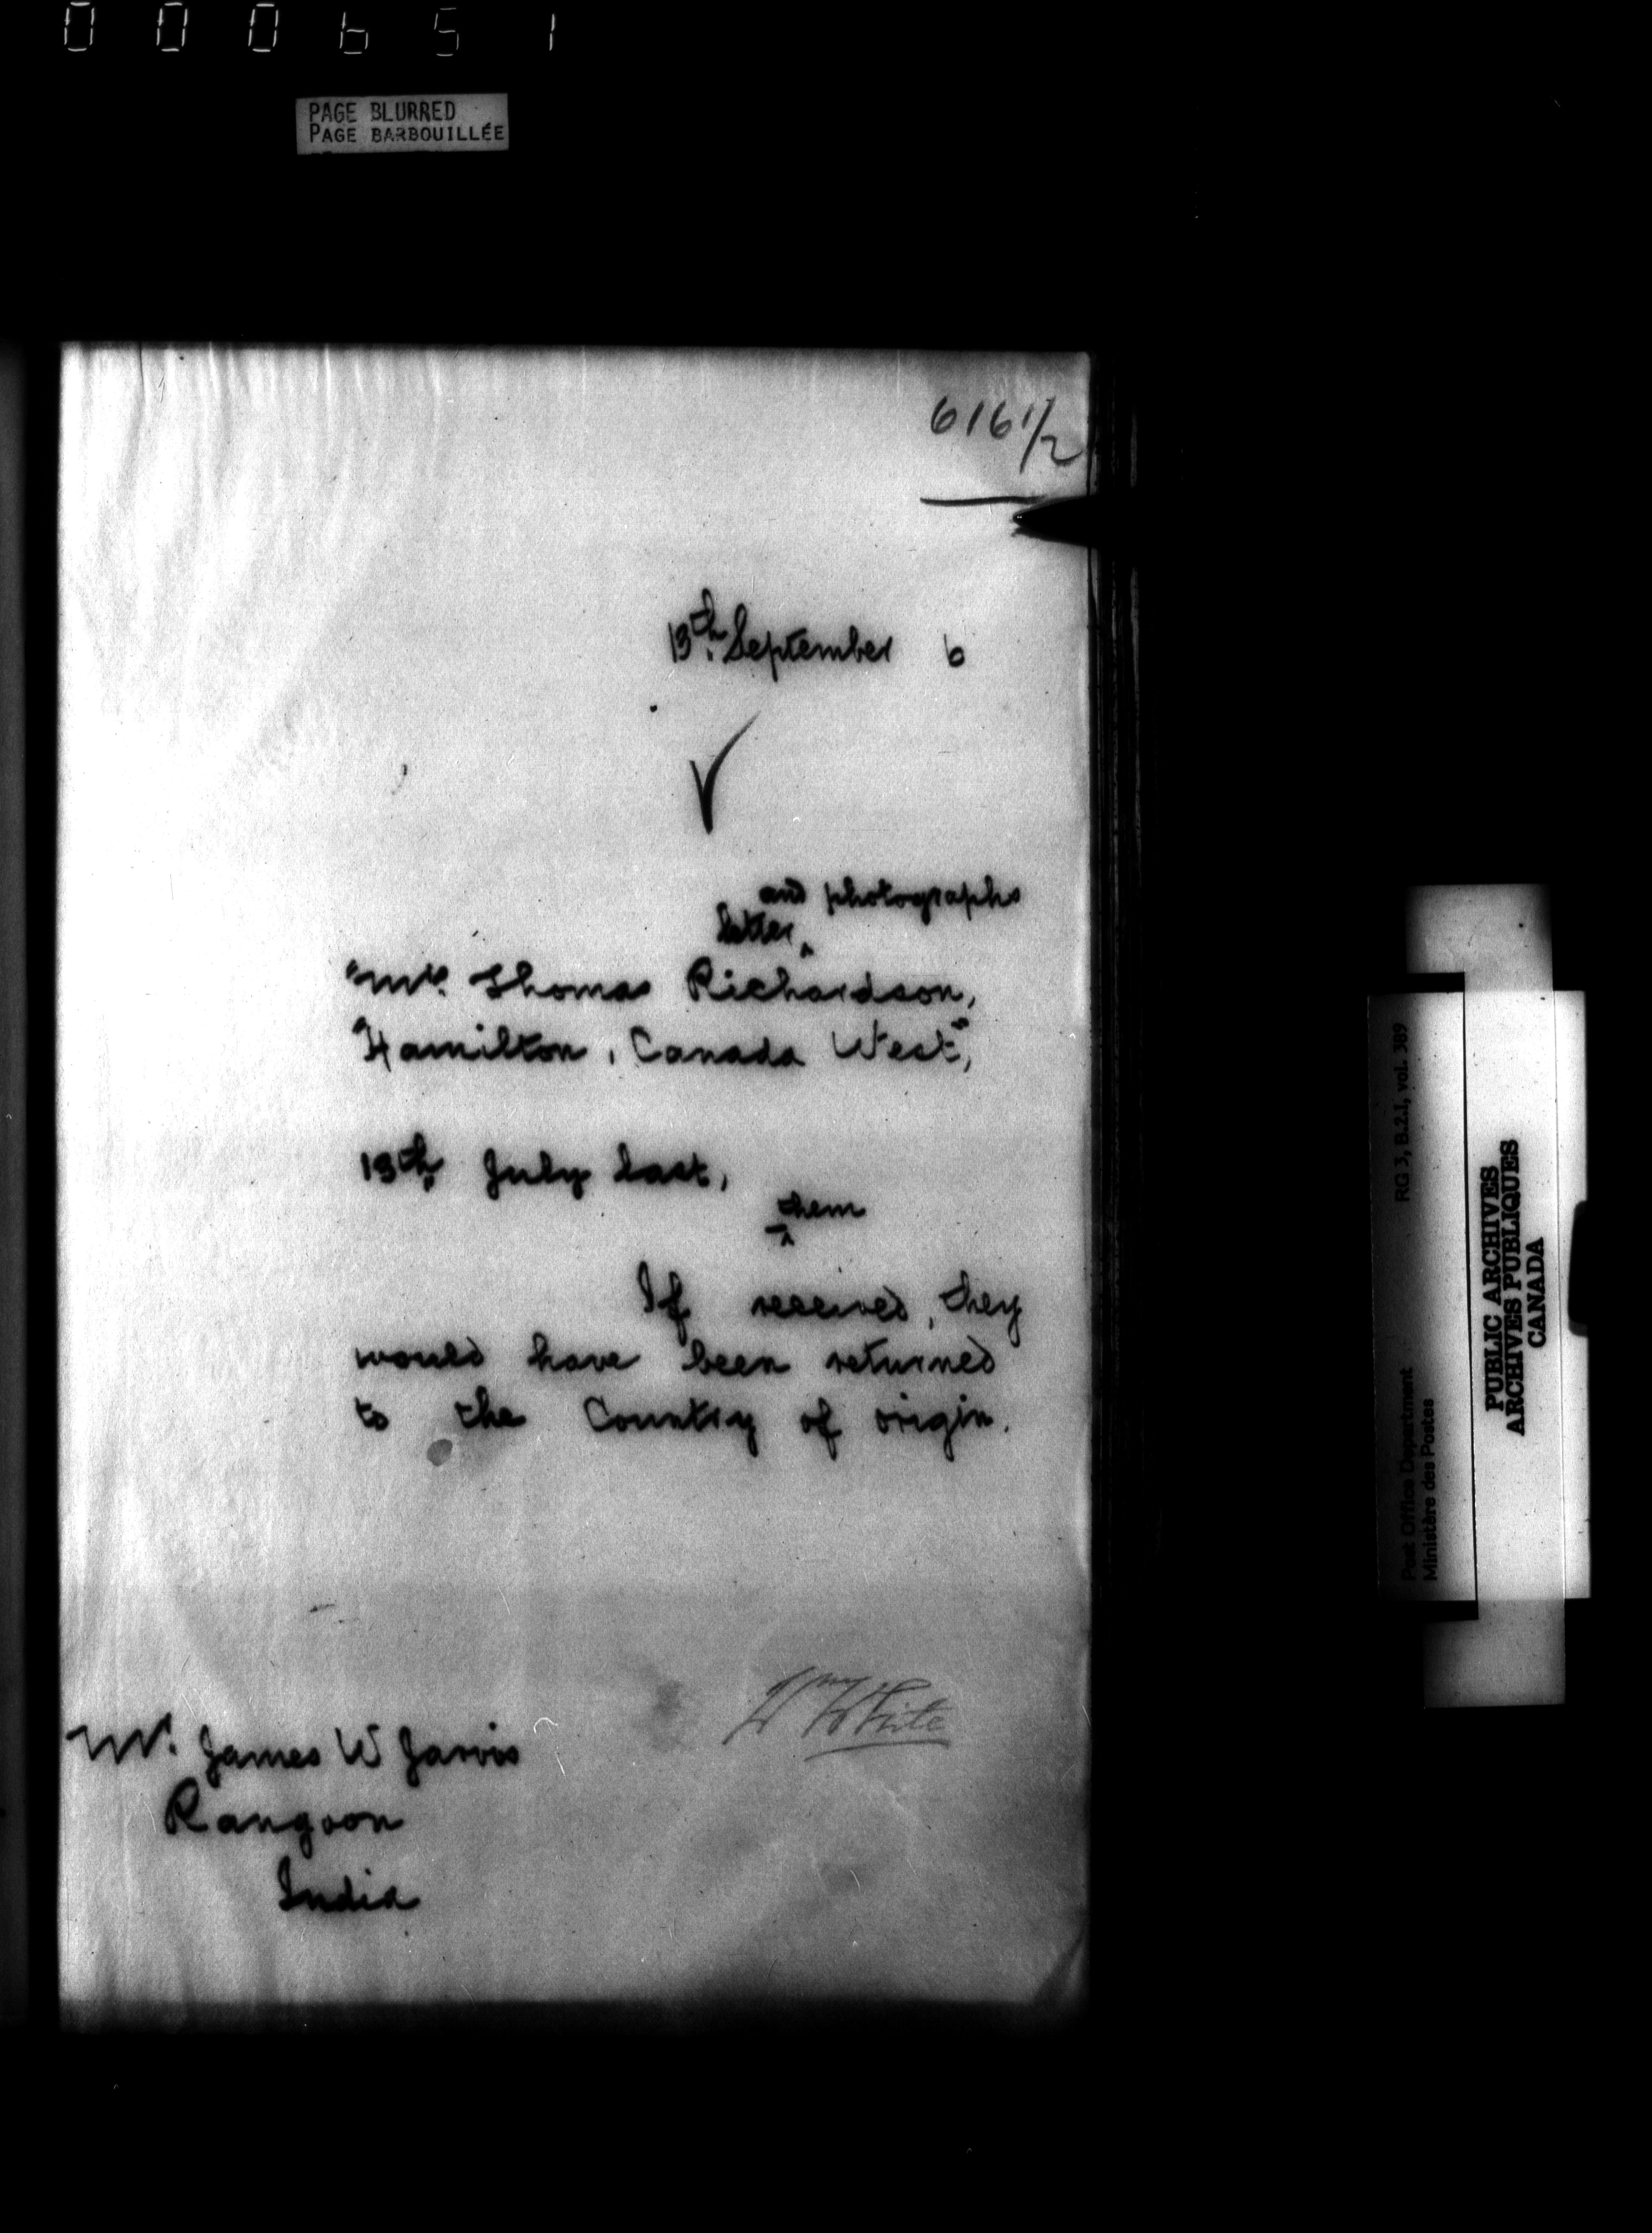 000651
PAGE BLURRED
PAGE BARBOUILLÉE
616 1/2
13th. September 6
and photographs
letter ^
"Mr. Thomas Richardson,
"Hamilton, Canada West",
13th. July last,
them
^
If received, they
would have been returned
to the Country of origin.
Wm White
Mr. James W Jarvis
Rangoon
India
RG 3, B.2.1, vol. 389
Post Office Department
Ministère des Postes
PUBLIC ARCHIVES
ARCHIVES PUBLIQUES
CANADA